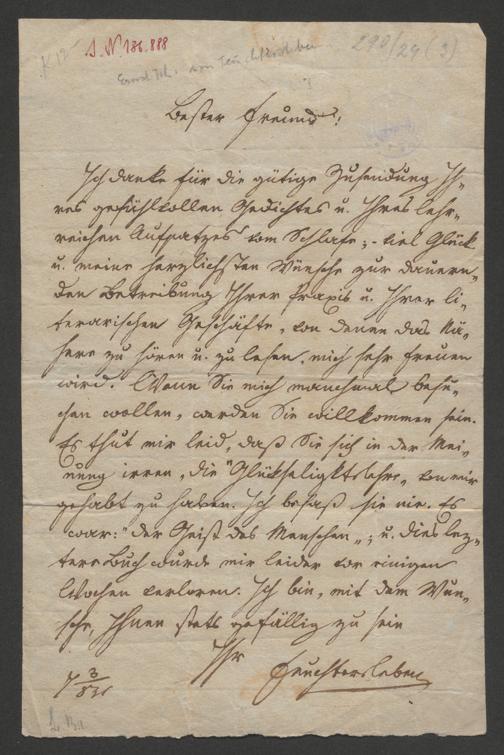 I. N. 186.888
290/24 (3)
Bester Freund!
Ich danke für die gütige Zusendung Ih-
res gefühlvollen Gedichtes u. Ihres lehr-
reichen Aufsatzes vom Schlafe; - viel Glück
u. meine herzlichsten Wünsche zur dauern-
den Betreibung Ihrer Praxis u. Ihrer li-
terarischen Geschäfte, von denen das Nä-
here zu hören u. zu lesen, mich sehr freuen
wird. Wenn Sie mich manchmal besu-
chen wollen, werden Sie willkommen sein.
Es thut mir leid, daß Sie sich in der Mei-
nung irren, die "Glückseligktslehre" von mir
gehabt zu haben. Ich besaß sie nie. Es
war: "der Geist des Menschen"; u. dies lez-
tere Buch wurde mir leider vor einigen
Wochen verloren. Ich bin, mit dem Wun-
sche, Ihnen stets gefällig zu sein
Ihr Feuchtersleben